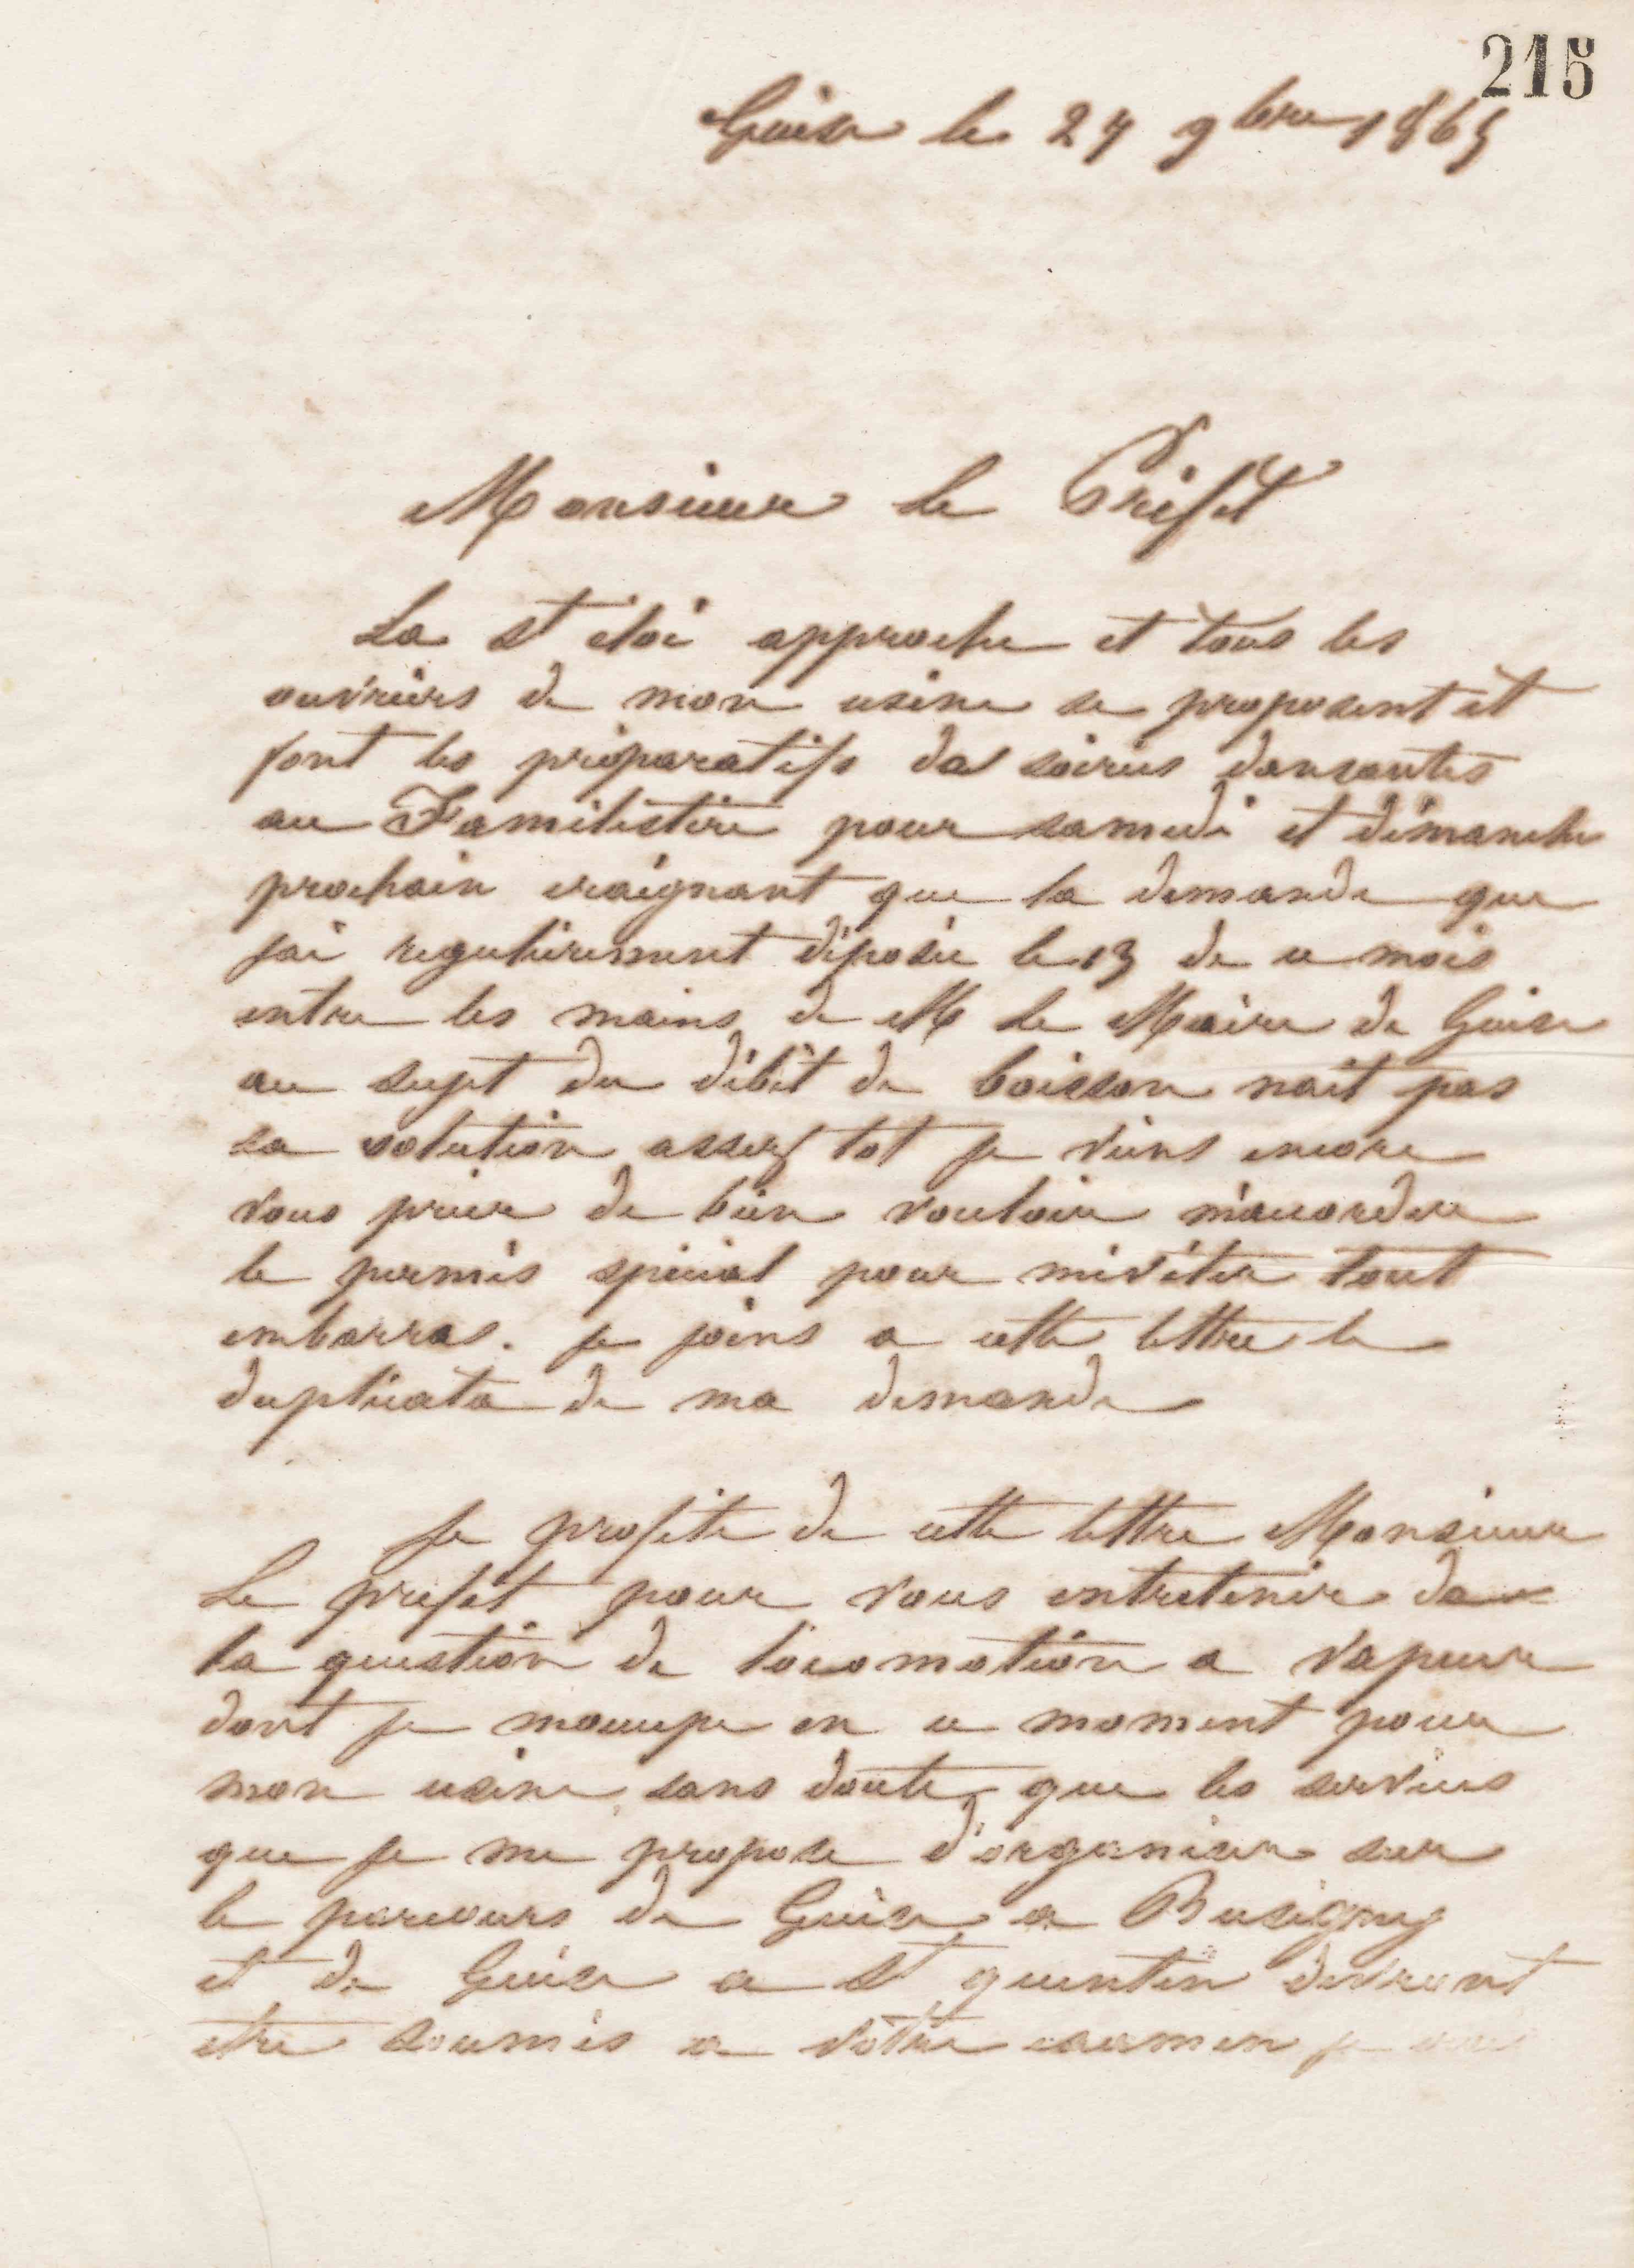 215
Guise le 27 9bre 1865
Monsieur le Préfet
La St éloi approche et tous les
ouvriers de mon usine se proposent et
font les préparatifs de soirées dansantes
au Familistère pour samedi et dimanche
prochain craignant que la demande que
jai regulièrement déposée le 13 de ce mois
entre les mains de M le Maire de Guise
au sujet du débit de boisson nait pas
sa solution assez tot je viens encore
vous prier de bien vouloir m'accorder
le permis spécial pour m'éviter tout
embarras. je joins a cette lettre le
duplicata de ma demande
Je profite de cette lettre Monsieur
Le prefet pour vous entretenir de
la question de locomotion a vapeur
dont je moccupe en ce moment pour
mon usine, sans doute que les services
que je me propose d'organiser sur
le parcours de Guise a Busigny
et de Guise a St quentin devront
etre soumis a votre examen je